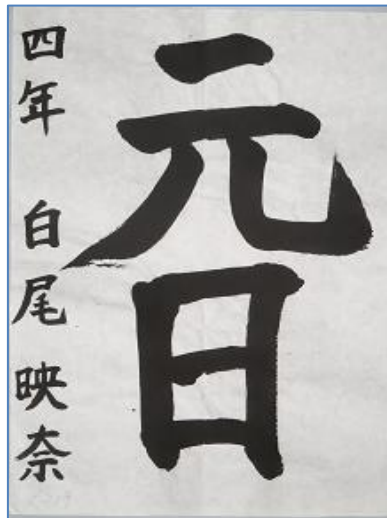 元日
四年 白尾 映奈